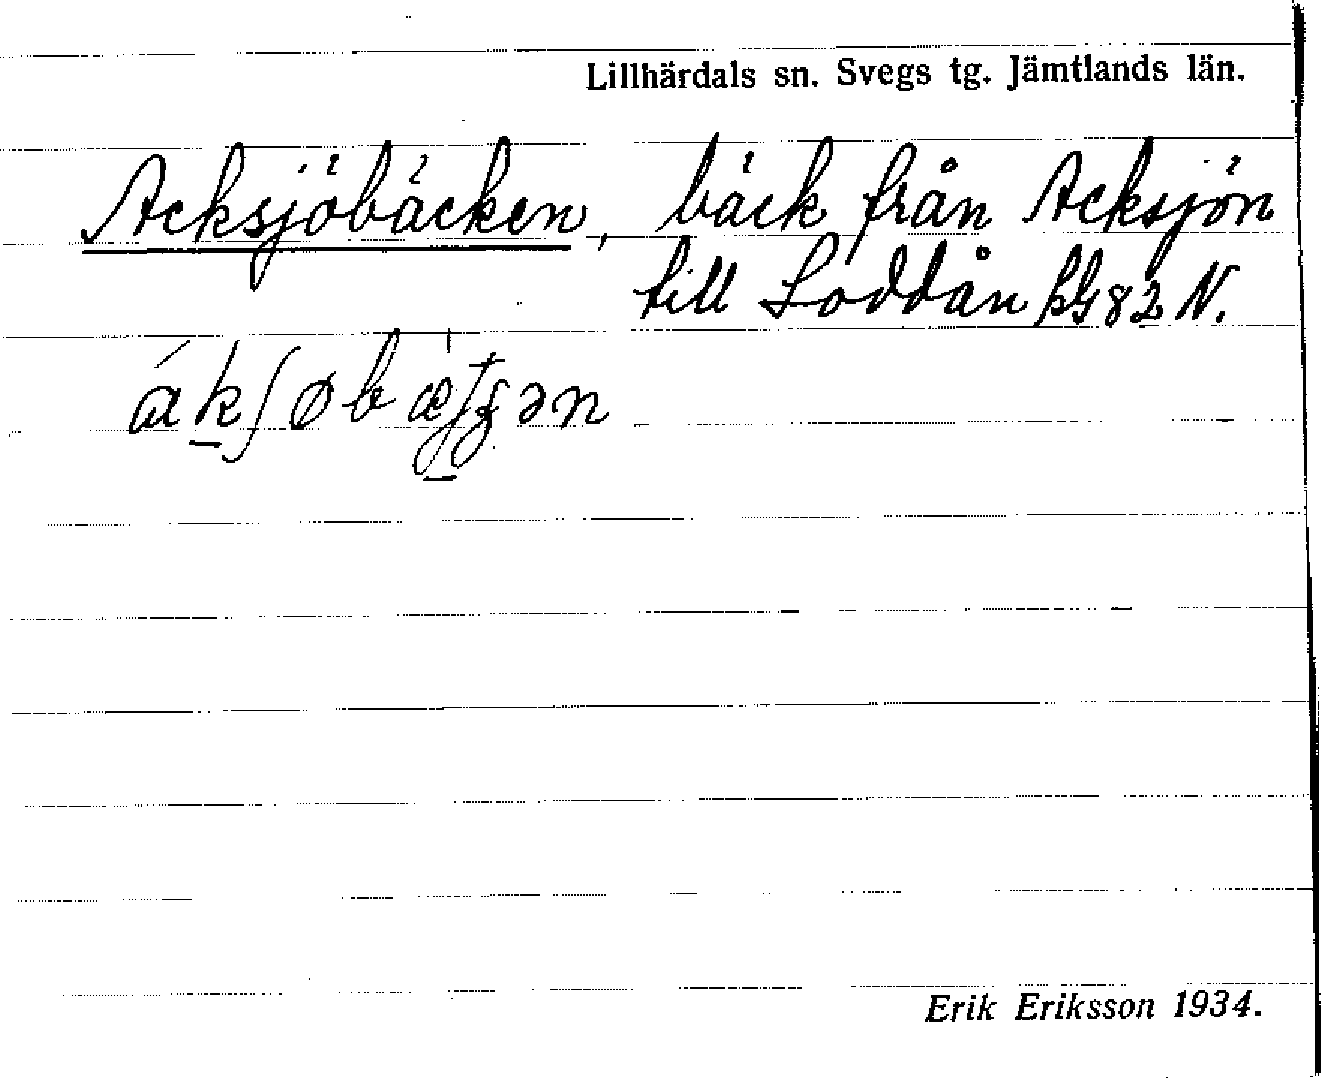 Lillhärdals sn. Svegs tg. Jämtlands län.
Acksjöbäcken, bäck från Acksjön
till Loddån kG82 N.
ákʃøbæ̀ən
Erik Eriksson 1934.